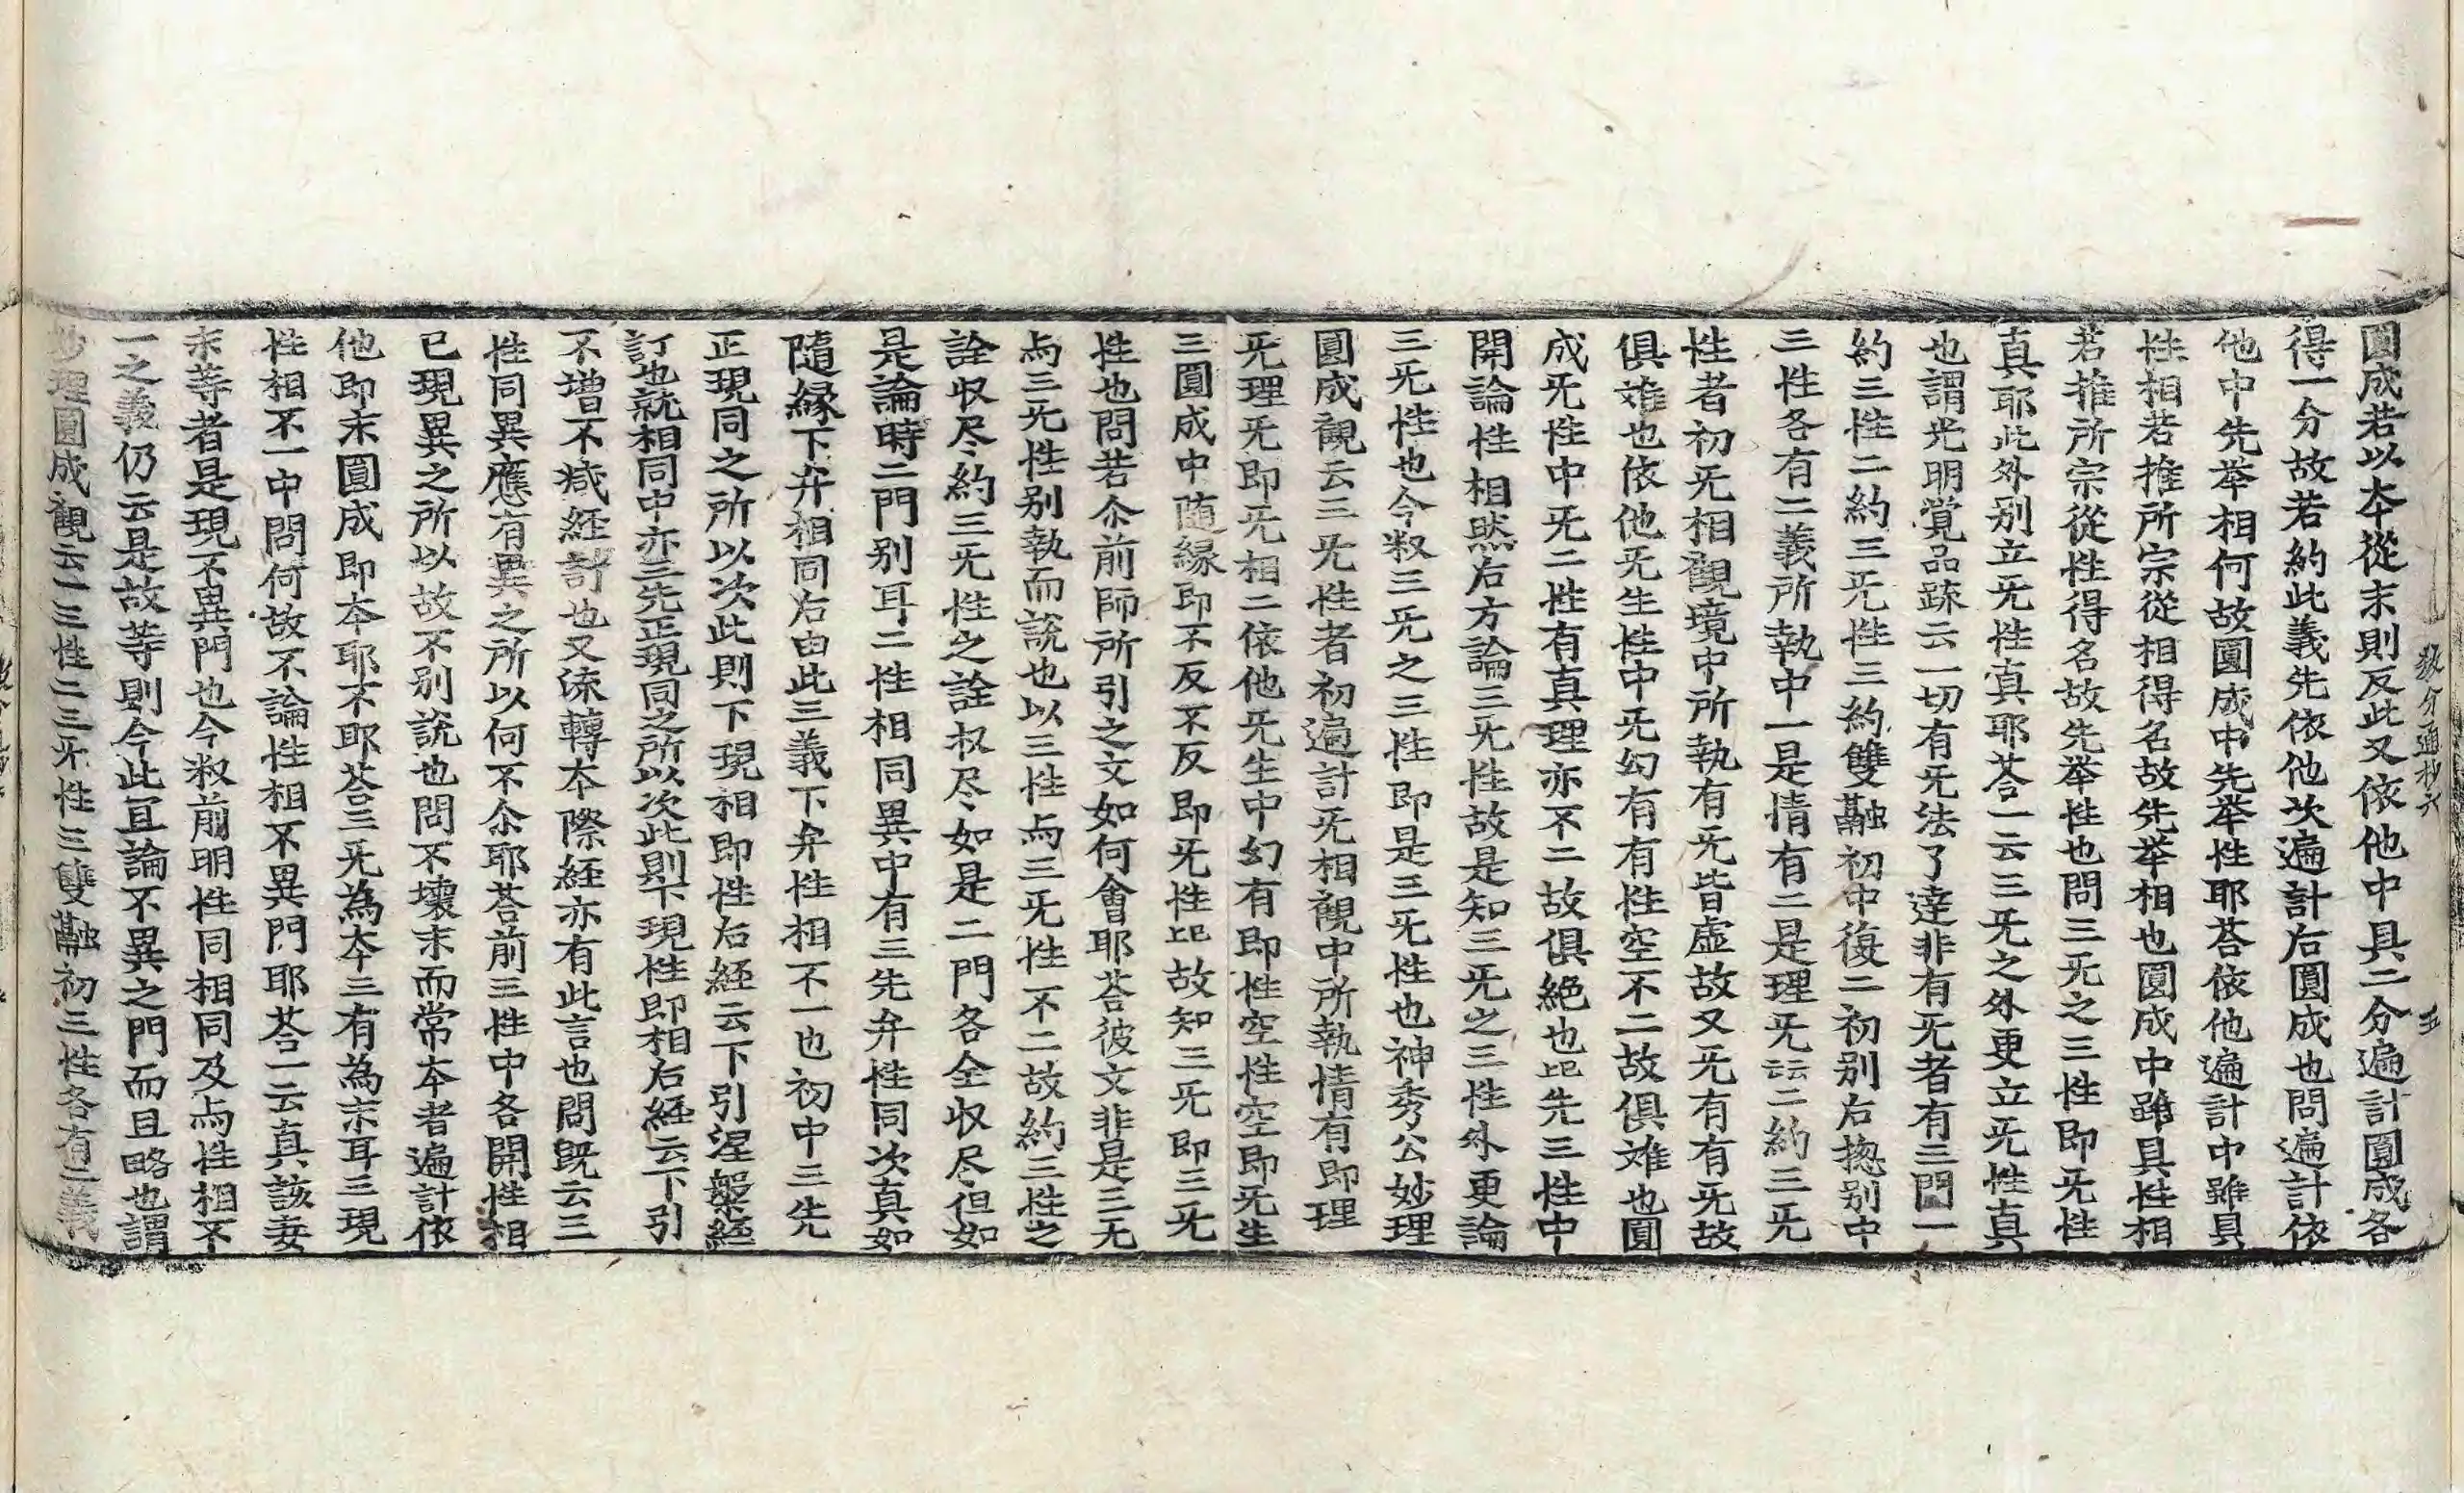 圓成若以夲從末則反此又依他中具二分遍計圓成各
得一分故若約此義先依他次遍計后圓成也問遍計依
他中先举相何故圓成中先举性耶荅依他遍計中雖具
性相若推所宗從相得名故先举相也圓成中雖具性相
若推所宗從性得名故先举性也問三旡之三性即旡性
真耶此外别立旡性真耶荅一云三旡之外更立旡性真
也謂光明覺品䟽云一切有旡法了達非有旡者有三門一
約三性二約三旡性三約雙融初中復二初别右揔别中
三性各有二義所執中一是情有二是理旡云云二約三旡
性者初旡相觀境中所執有旡皆虚故又旡有有旡故
俱𮥼也依他旡生性中旡幻有有性空不二故俱𮥼也圓
成旡性中旡二性有真理亦不二故俱絕也已上先三性中
開論性相然右方論三旡性故是知三旡之三性外更論
三旡性也今㕘三旡之三性即是三旡性也神秀公妙理
圓成觀云三旡性者初遍計旡相觀中所執情有即理
旡理旡即旡相二依他旡生中幻有即性空性空即旡生
三圓成中随緣即不反不反即旡性已上故知三旡即三旡
性也問若尒前師所引之文如何會耶荅彼文非是三无
与三旡性别執而說也以三性与三旡性不二故約三性之
詮收尽約三旡性之詮收尽如是二門各全收尽但如
是論時二門别耳二性相同異中有三先弁性同次真如
隨緣下弁相同右由此三義下弁性相不一也初中三先
正現同之所以次此則下現相即性右經云下引涅槃經
訂也就相同中亦三先正現同之所以次此則下現性即相右經云下引
不增不减経訂也又流轉夲際経亦有此言也問既云三
性同異應有異之所以何不尒耶荅前三性中各開性相
已現異之所以故不别說也問不壞末而常夲者遍計依
他即末圓成即夲耶不耶荅三旡為夲三有為末耳三現
性相不一中問何故不論性相不異門耶荅一云真該妄
末等者是現不異門也今㕘前明性同相同及与性相不
一之義仍云是故等則今此冝論不異之門而且略也謂
妙理圓成觀云一三性二三旡性三雙融初三性各有二義
教分通抄六
五